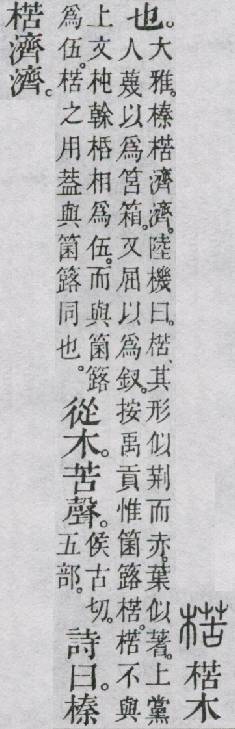 楛 楛木
也。大雅。榛楛濟濟。陸機曰。楛、其形似荆而赤。葉似蓍。上黨
人蔑以爲筥箱。又屈以爲釵。按禹貢惟箘簵楛。楛不與
上文杶榦桰相爲伍。而與箘簵
爲伍。楛之用葢與箘簵同也。
從木。苦聲。侯古切。五部。詩曰。榛
楛濟濟。